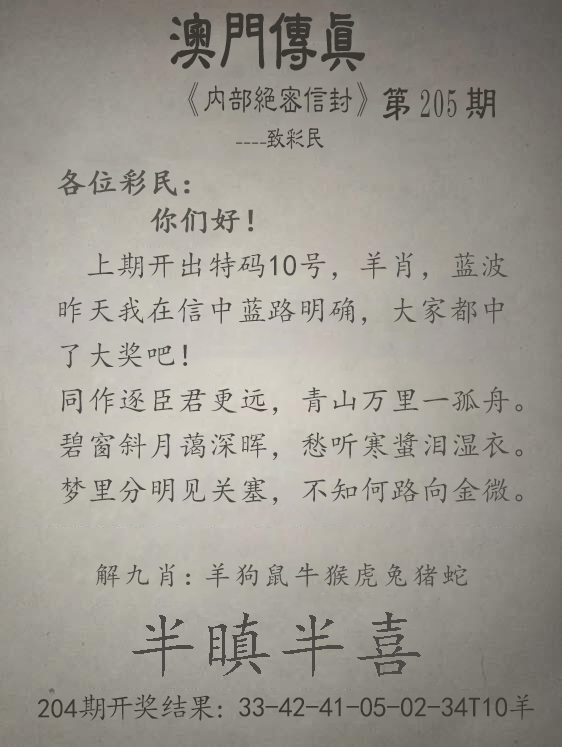 澳門傳眞
《内部絕密信封》第205期
----致彩民
各位彩民：
你们好！
上期开出特码10号，羊肖，蓝波
昨天我在信中蓝路明确，大家都中
了大奖吧！
同作逐臣君更远，青山万里一孤舟。
碧窗斜月蔼深晖，愁听寒螀泪湿衣。
梦里分明见关塞，不知何路向金微。
解九肖：羊狗鼠牛猴虎兔猪蛇
半瞋半喜
204期开奖结果：33-42-41-05-02-34T10羊